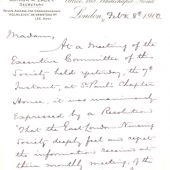 SECRETARY
London, Feb. 8th 1910.
Madam,
At a Meeting of the
Executive Committee of this
Society held yesterday, the 7th
Instant, at St Paul's Chapter
House, it was unanimously
expressed by a Resolution
"That the East London Nursing
Society deeply feel and regret
the information received at
their monthly meeting, of the